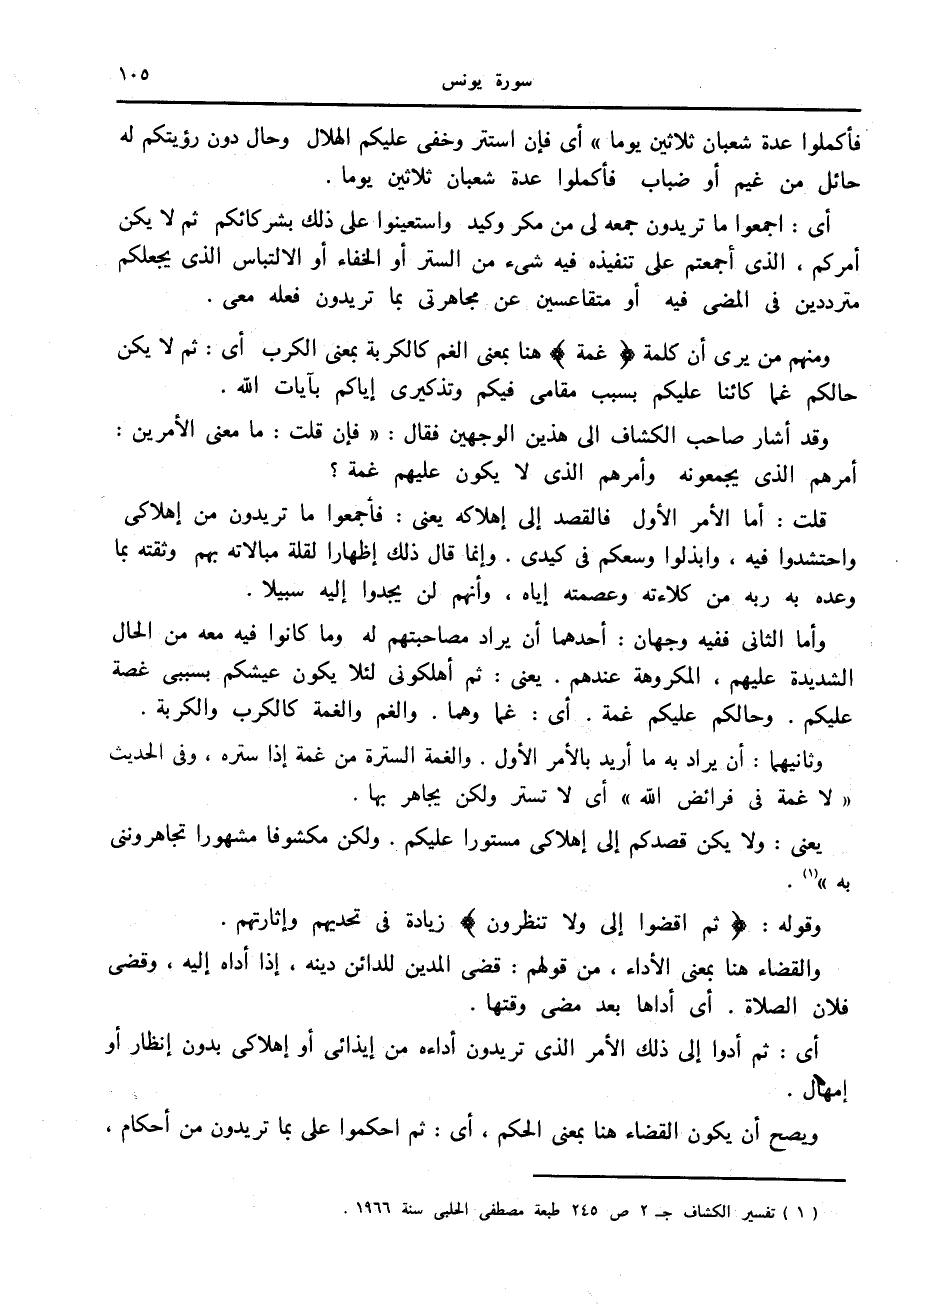 سورة يونس ١٠٥
فأكملوا عدة شعبان ثلاثين يوما » أى فإن استتر وخفى عليكم الهلال وحال دون رؤيتكم له
حائل من غيم أو ضباب فأكملوا عدة شعبان ثلاثين يوما .
أى : اجمعوا ما تريدون جمعه لى من مكر وكيد واستعينوا على ذلك بشركائكم ثم لا يكن
أمركم ، الذى أجمعتم على تنفيذه فيه شىء من الستر أو الخفاء أو الالتباس الذى يجعلكم
مترددين فى المضى فيه أو متقاعسين عن مجاهرتى بما تريدون فعله معى .
ومنهم من يرى أن كلمة ﴿ غمة ﴾ هنا بمعنى الغم كالكربة بمعنى الكرب أى : ثم لا يكن
حالكم غما كائنا عليكم بسبب مقامى فيكم وتذكيرى إياكم بآيات الله .
وقد أشار صاحب الكشاف الى هذين الوجهين فقال : « فإن قلت : ما معنى الأمرين :
أمرهم الذى يجمعونه وأمرهم الذى لا يكون عليهم غمة ؟
قلت : أما الأمر الأول فالقصد إلى إهلاكه يعنى : فأجمعوا ما تريدون من إهلاكى
واحتشدوا فيه ، وابذلوا وسعكم فى كيدى . وإنما قال ذلك إظهارا لقلة مبالاته بهم وثقته بما
وعده به ربه من كلاءته وعصمته إياه ، وأنهم لن يجدوا إليه سبيلا .
وأما الثانى ففيه وجهان : أحدهما أن يراد مصاحبتهم له وما كانوا فيه معه من الحال
الشديدة عليهم ، المكروهة عندهم . يعنى : ثم أهلكونى لئلا يكون عيشكم بسببى غصة
عليكم . وحالكم عليكم غمة . أى : غما وهما . والغم والغمة كالكرب والكربة .
وثانيهما : أن يراد به ما أريد بالأمر الأول . والغمة السترة من غمة إذا ستره ، وفى الحديث
« لا غمة فى فرائض الله » أى لا تستر ولكن يجاهر بها .
يعنى : ولا يكن قصدكم إلى إهلاكى مستورا عليكم . ولكن مكشوفا مشهورا تجاهروننى
به »(١) .
وقوله : ﴿ ثم اقضوا إلى ولا تنظرون ﴾ زيادة فى تحديهم وإثارتهم .
والقضاء هنا بمعنى الأداء ، من قولهم : قضى المدين للدائن دينه ، إذا أداه إليه ، وقضى
فلان الصلاة . أى أداها بعد مضى وقتها .
أى : ثم أدوا إلى ذلك الأمر الذى تريدون أداءه من إيذائى أو إهلاكى بدون إنظار أو
إمهال .
ويصح أن يكون القضاء هنا بمعنى الحكم ، أى : ثم احكموا على بما تريدون من أحكام ،
( ١ ) تفسير الكشاف جـ ٢ ص ٢٤٥ طبعة مصطفى الحلبى سنة ١٩٦٦ .